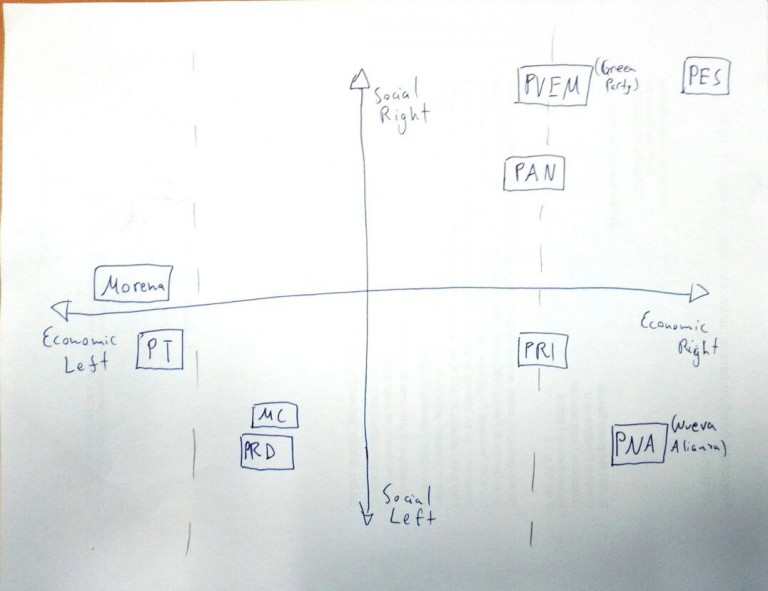 Social
Right
PVEM
(Green
Party)
PES
PAN
Morena
Economic
Left
PT
PRI
Economic
Right
MC
PRD
PNA
(Nueva
Alianza)
Social
Left